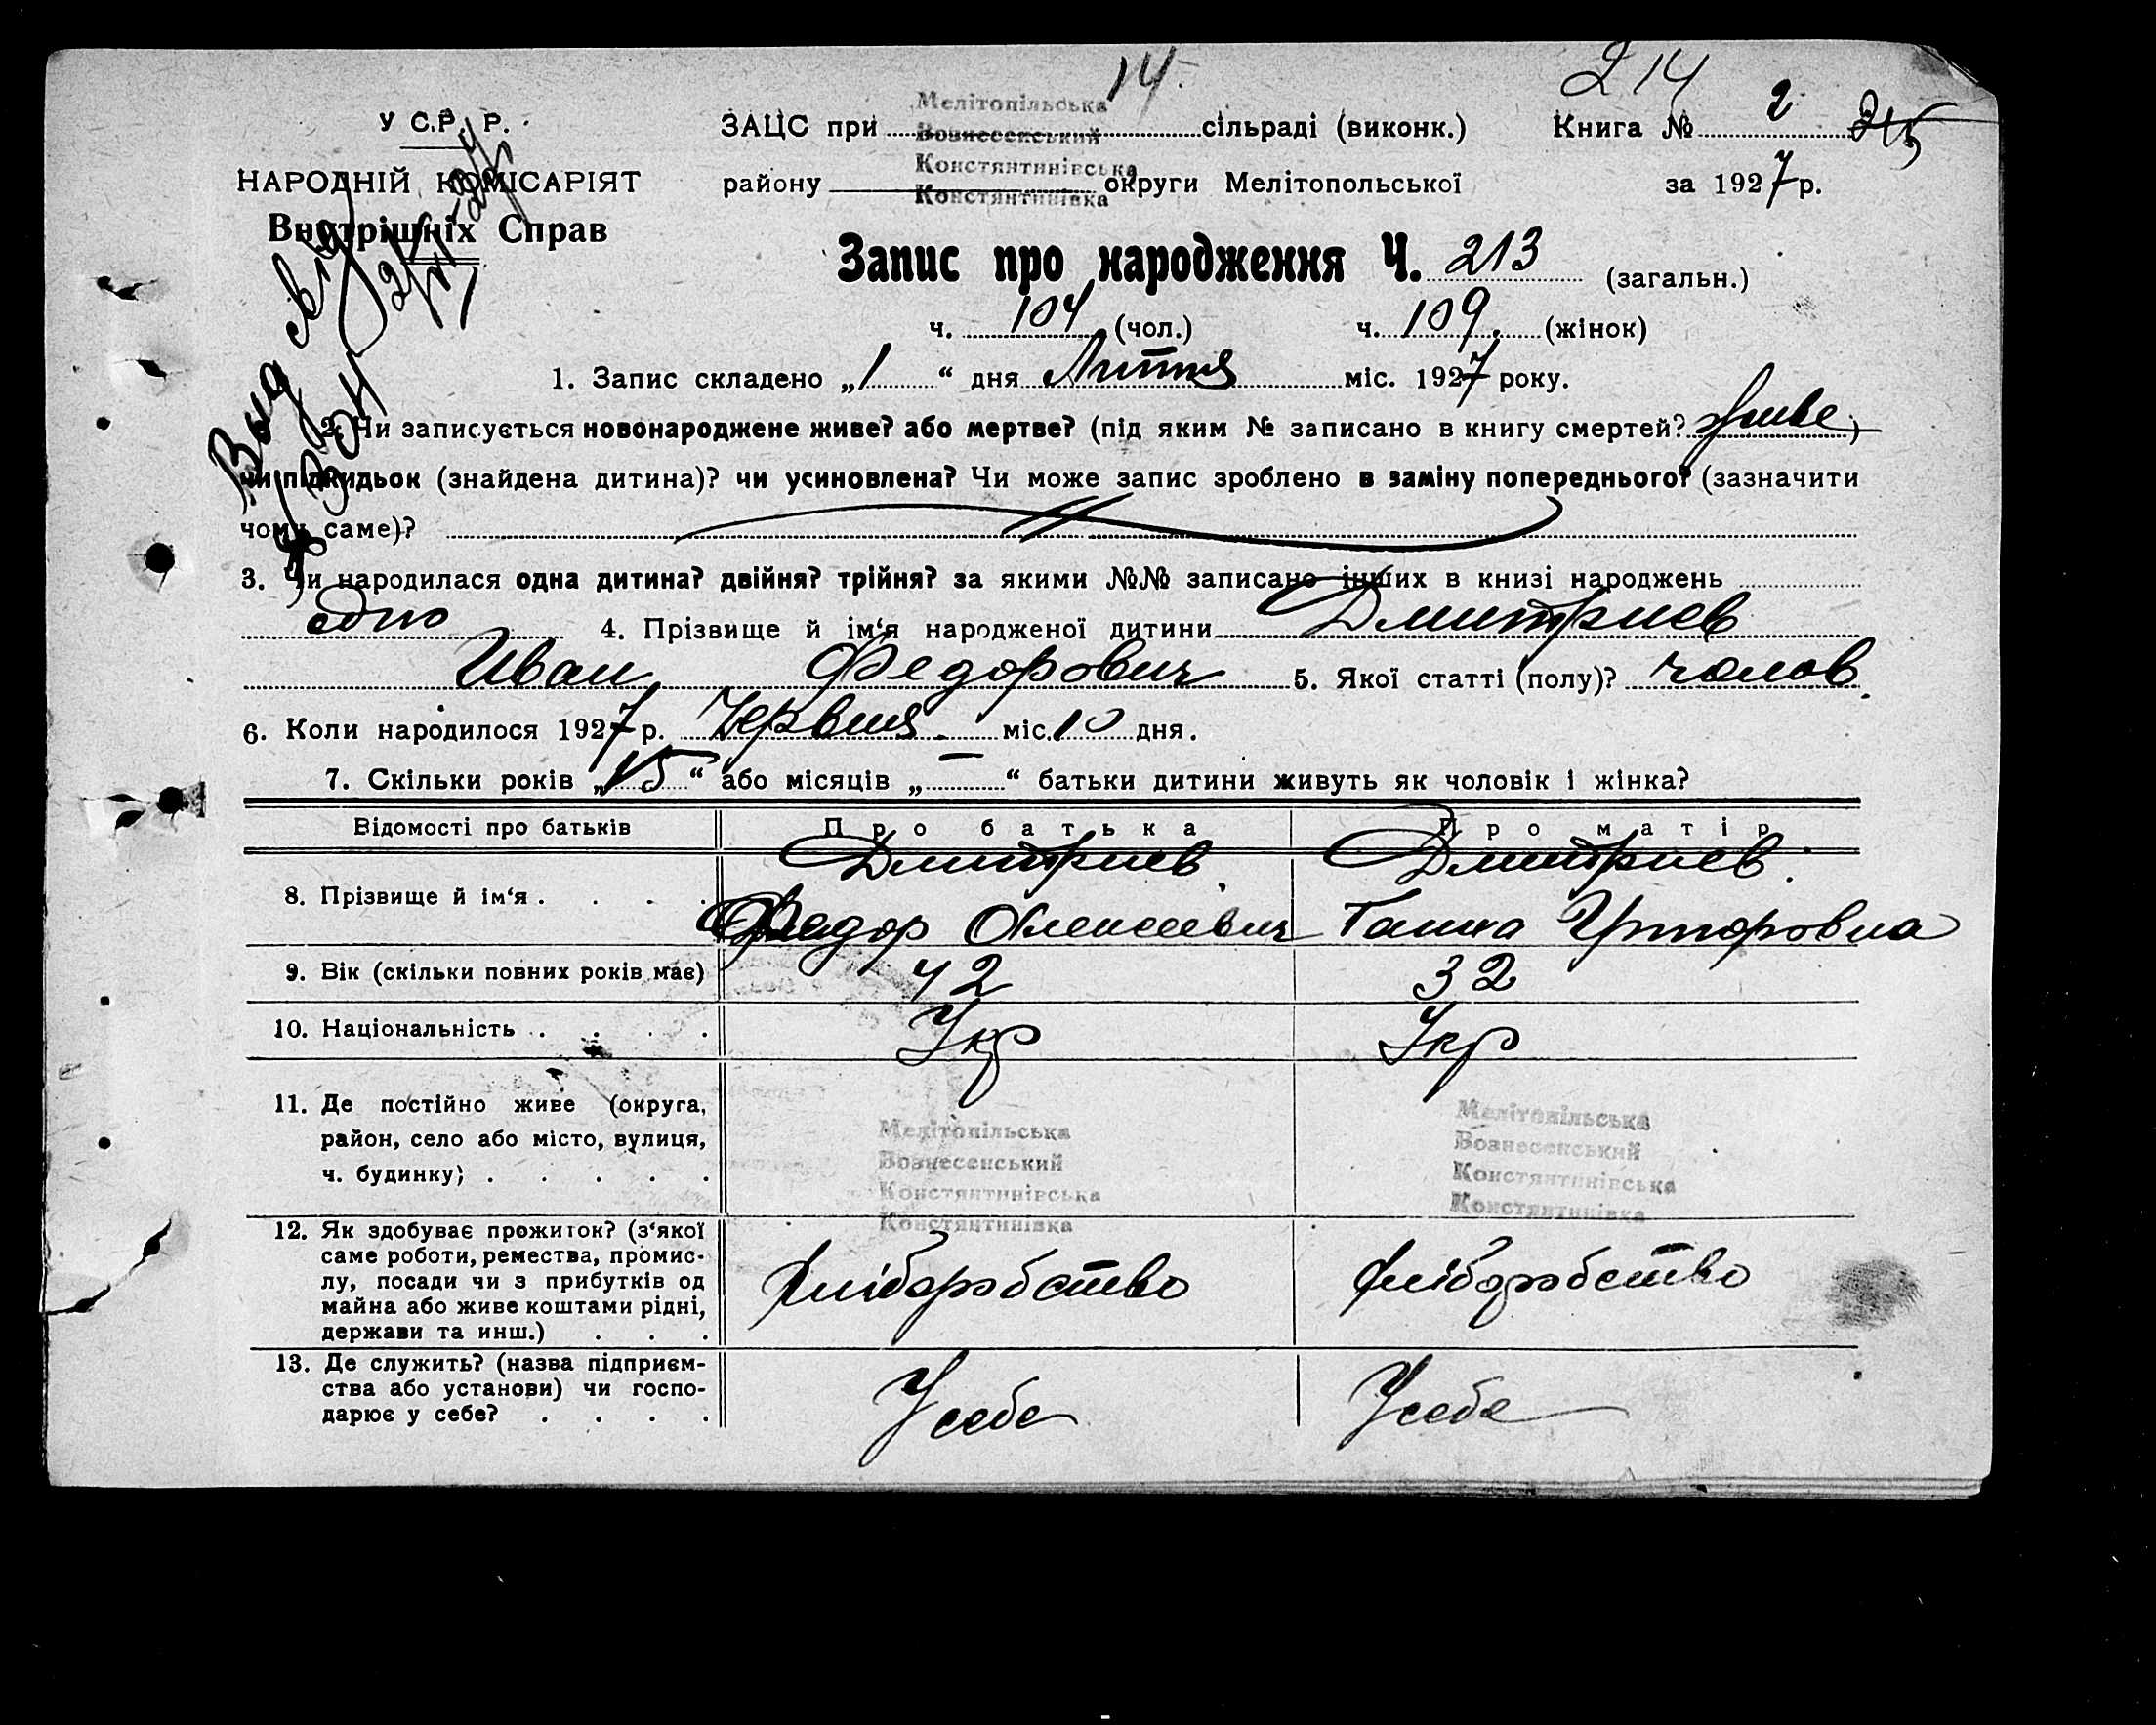 14
214
У С.Р. Р.
ЗАЦС при Мелітопільська Вознесенський сільраді (виконк.) Книга № 2 215
НАРОДНІЙ КОМІСАРІЯТ
Внутрішніх Справ
району Констянтинівська Констянтинівка округи Мелітопольської за 1927 р.
Запис про народження Ч. 213 (загальн.)
ч. 104 (чол.) ч. 109 (жінок)
1. Запис складено „1“ дня Липня міс. 1927 року.
2. Чи записується новонароджене живе? або мертве? (під яким № записано в книгу смертей? живе)
чи підкидьок (знайдена дитина)? чи усиновлена? Чи може запис зроблено в заміну попереднього? (зазначити
чому саме)?
3. Чи народилася одна дитина? двійня? трійня? за якими №№ записано інших в книзі народжень
одно 4. Прізвище й ім‘я народженої дитини Дмитриев
Иван Федорович 5. Якої статті (полу)? чолов.
6. Коли народилося 1927 р. Червня міс. 10 дня.
7. Скільки років „15“ або місяців „—“ батьки дитини живуть як чоловік і жінка?
Відомості про батьків Про батька Про матір
8. Прізвище й ім‘я . . . . Дмитриев Федор Олексеевич Дмитриев Ганна
9. Вік (скільки повних років має) 42 32
10. Національність . . . . Укр Укр
11. Де постійно живе (округа,
район, село або місто, вулиця,
ч. будинку) . . . . .
Мелітопільська
Вознесенський
Констянтинівська
Констянтинівка
Мелітопільська
Вознесенський
Констянтинівська
Констянтинівка
12. Як здобуває прожиток? (з‘якої
саме роботи, ремества, промис-
лу, посади чи з прибутків од
майна або живе коштами рідні,
держави та инш.) . . .
Хліборобство Хліборобство
13. Де служить? (назва підприєм-
ства або установи) чи госпо-
дарює у себе? . . . .
У себе У себе